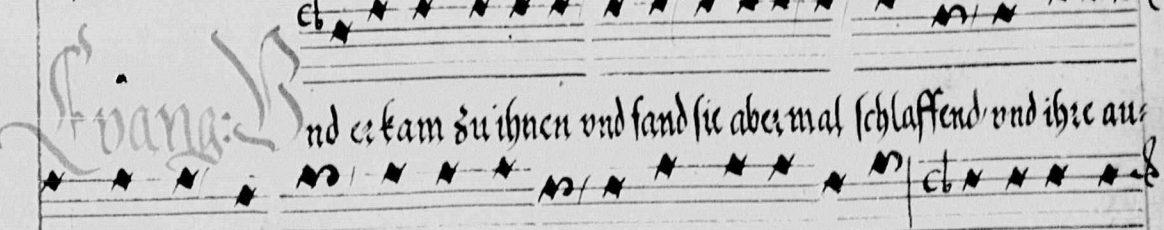 Evang: Und er kam zu ihnen vnd fand sie abermal schlaffend, vnd ihre au-